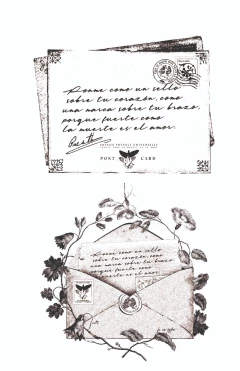 Ponme como un sello
sobre tu corazón, como
una marca sobre tu brazo,
porque fuerte como
la muerte es el amor.
POST CARD
Ponme como un sello
sobre tu corazón, como
una marca sobre tu brazo
porque fuerte como
la muerte es el amor